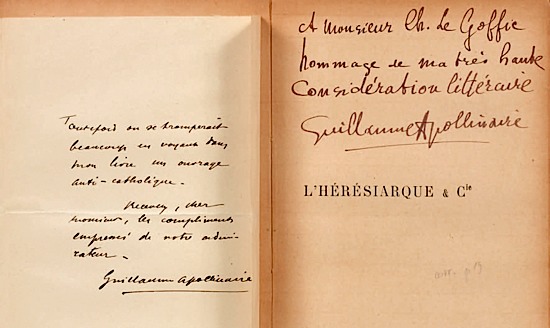 Toutefois on se tromperait
beaucoup en voyant dans
mon livre un ouvrage
anti-catholique.
Recevez, cher
monsieur, les compliments
empressés de votre admi-
rateur.
Guillaume Apollinaire
A Monsieur Ch. Le Goffic
hommage de ma très haute
Considération littéraire
Guillaume Apollinaire
L'HÉRÉSIARQUE & Cie